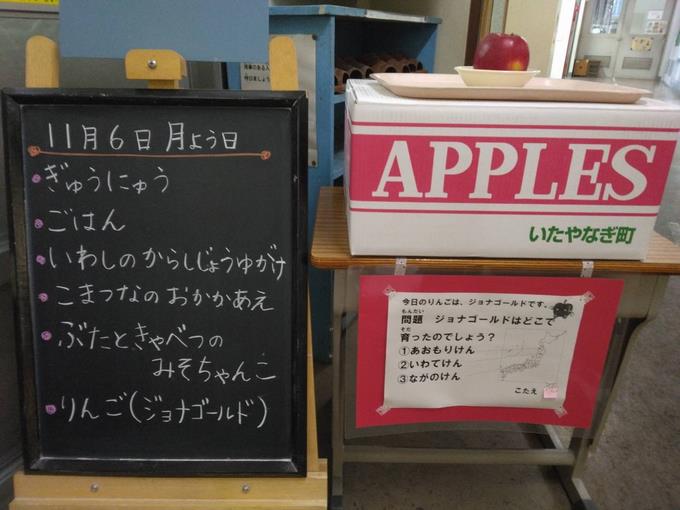 11月6日 月よう日
ぎゅうにゅう
ごはん
いわしのからしじょうゆがけ
こまつなのおかかあえ
ぶたときゃべつの
みそちゃんこ
りんご(ジョナゴールド)
APPLES
いたやなぎ町
今日のりんごは、ジョナゴールドです。
もんだい
問題 ジョナゴールドはどこで
そだ
育ったのでしょう?
①あおもりけん
②いわてけん
③ながのけん
こたえ